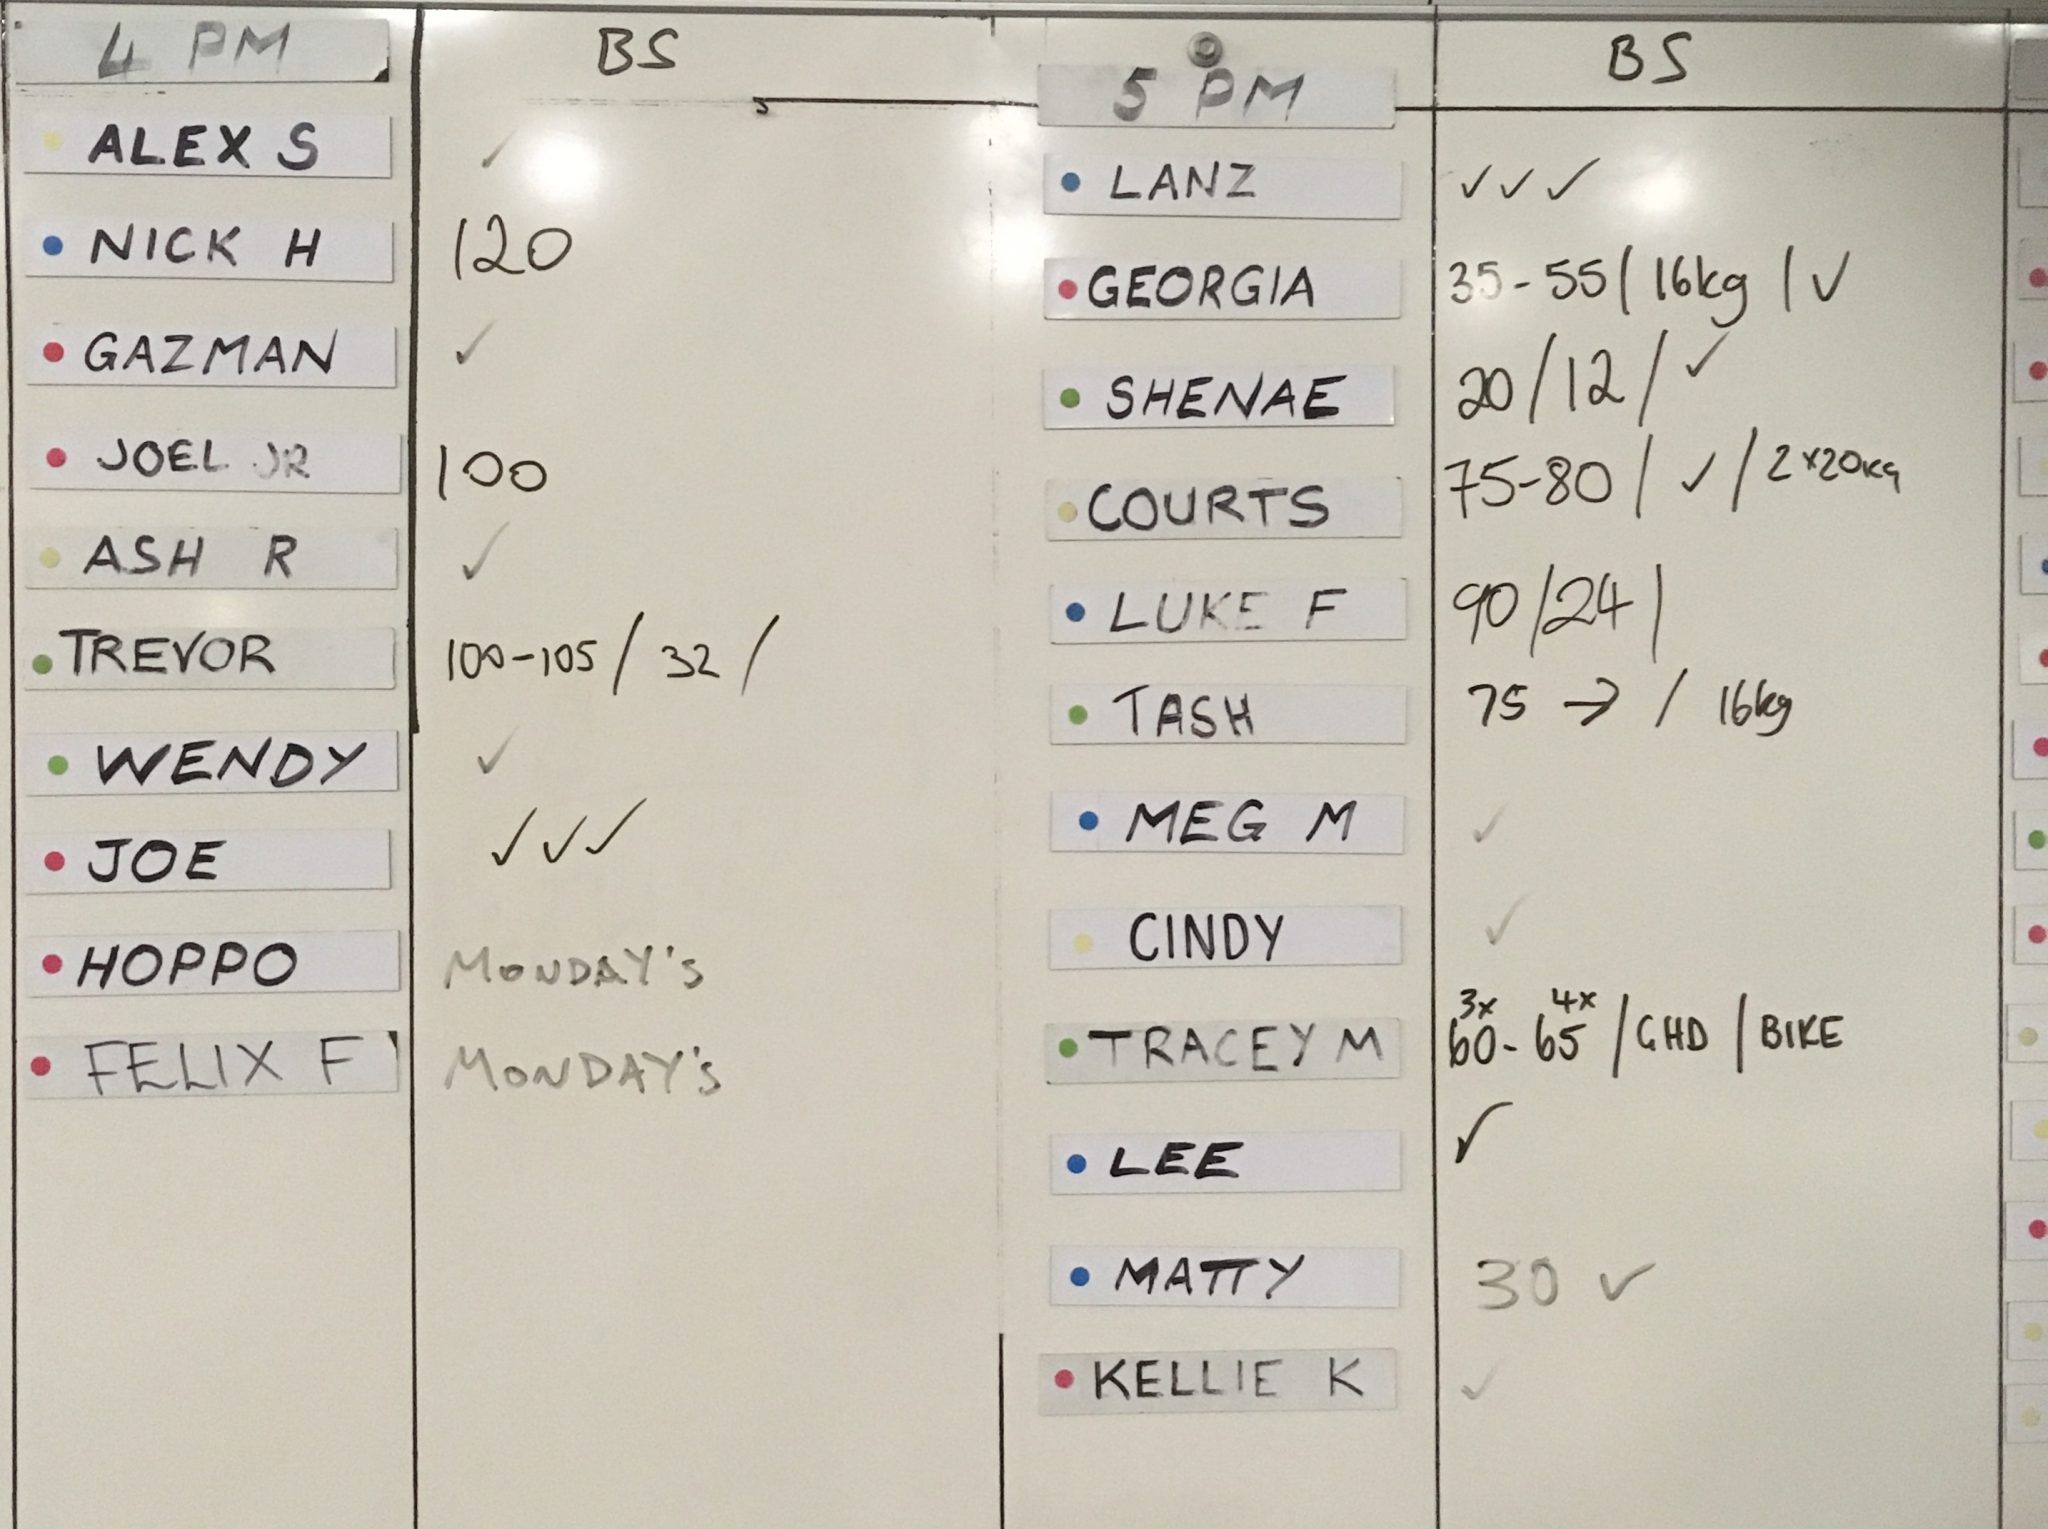 4 PM BS
ALEX S ✓
NICK H 120
GAZMAN ✓
JOEL JR 100
ASH R ✓
TREVOR 100-105 / 32 /
WENDY ✓
JOE ✓✓✓
HOPPO MONDAY'S
FELIX F MONDAY'S
5 PM BS
LANZ ✓✓✓
GEORGIA 35-55 / 16kg / ✓
SHENAE 20 / 12 / ✓
COURTS 75-80 / ✓ / 2x20kg
LUKE F 90 / 24 /
TASH 75 → / 16kg
MEG M ✓
CINDY ✓
3x 4x
TRACEY M 60-65 / GHD / BIKE
LEE ✓
MATTY 30 ✓
KELLIE K ✓